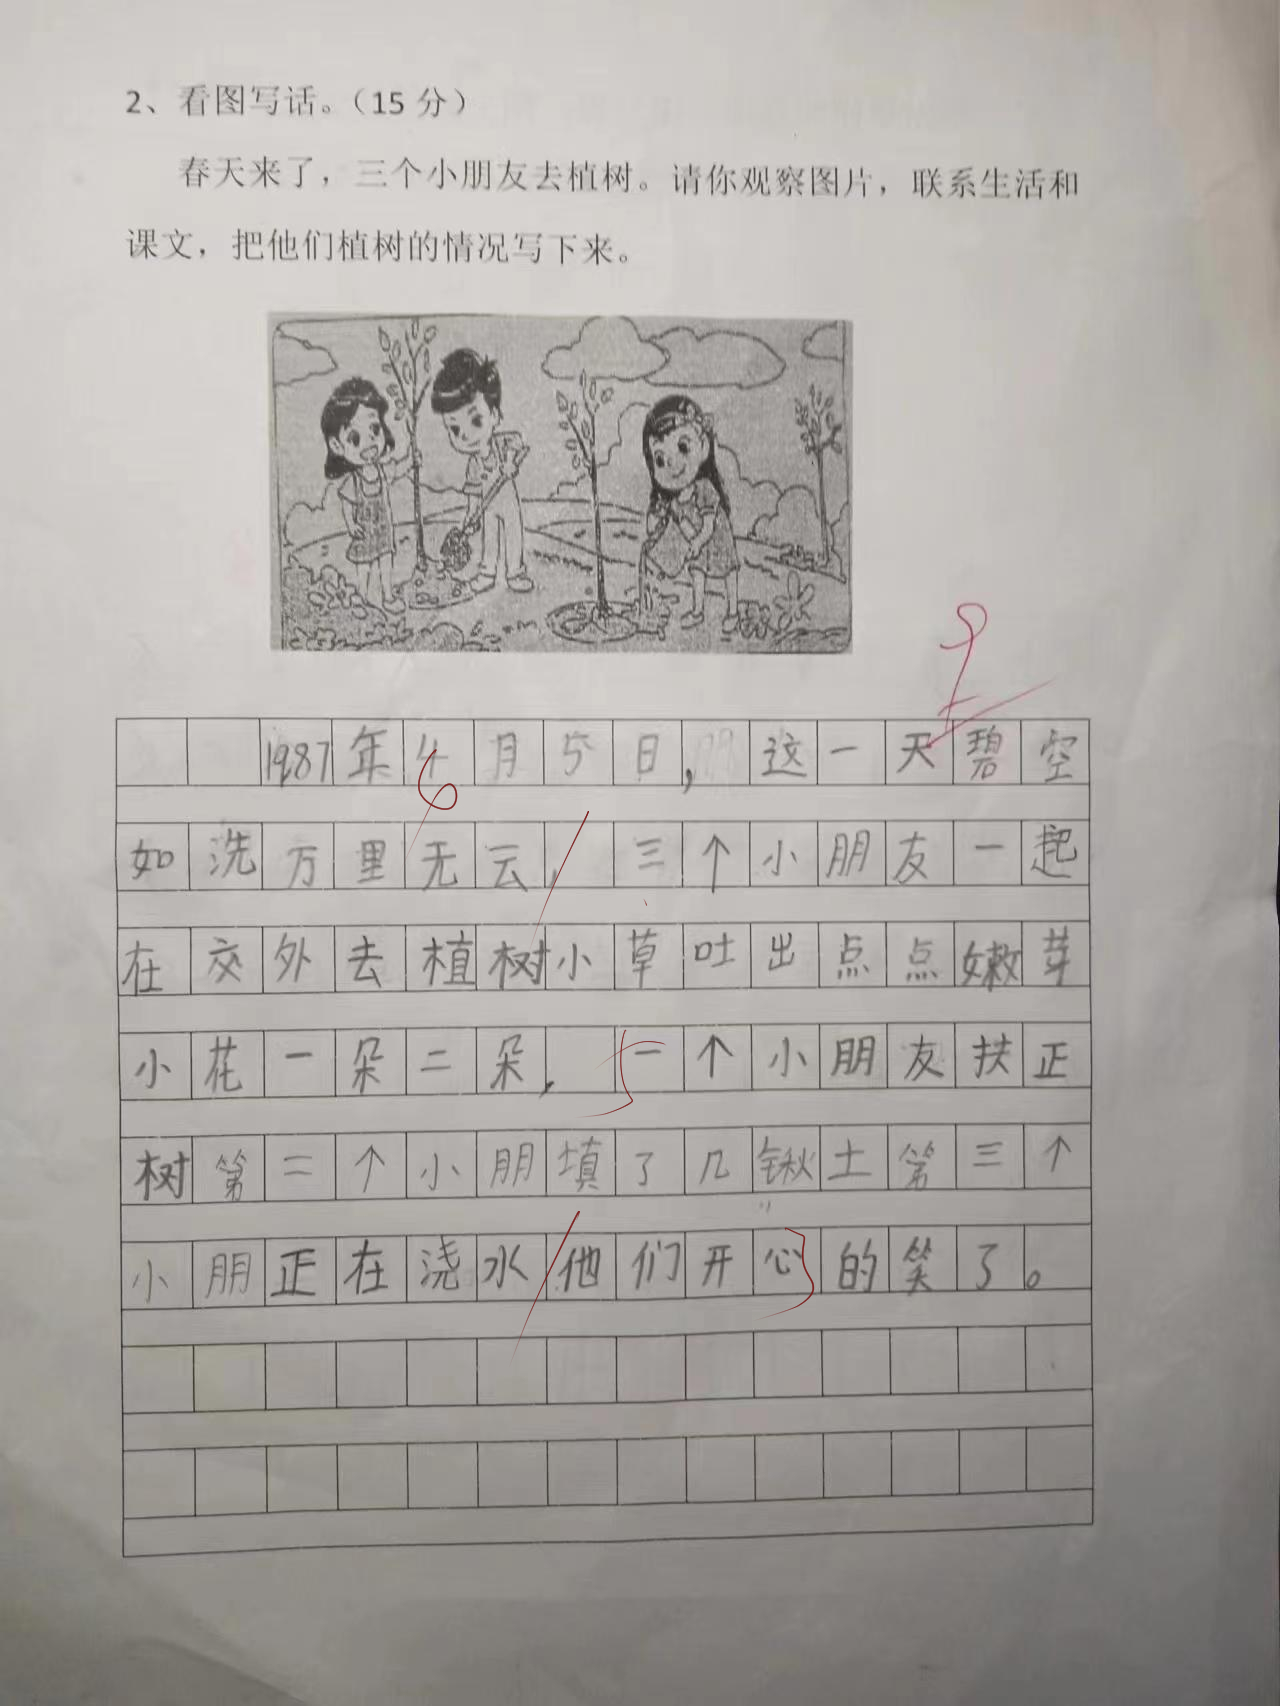 2、看图写话。（15分）
春天来了，三个小朋友去植树。请你观察图片，联系生活和
课文，把他们植树的情况写下来。
1987年4月5日，这一天碧空
如洗万里无云，三个小朋友一起
在交外去植树小草吐出点点嫩芽
小花一朵二朵，一个小朋友扶正
树第二个小朋填了几锹土第三个
小朋正在浇水他们开心的笑了。